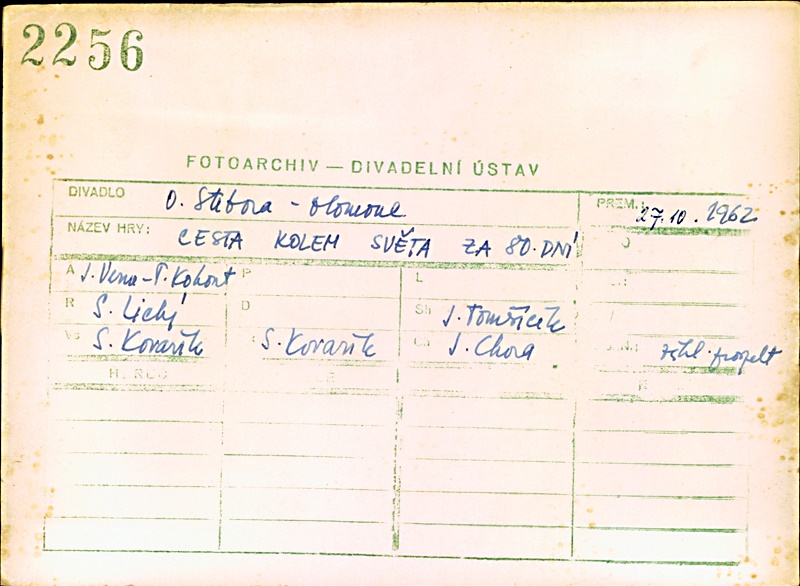 2256
FOTOARCHIV — DIVADELNÍ ÚSTAV
DIVADLO O. Stibora - Olomouc PREM.: 27.10.1962
NÁZEV HRY: CESTA KOLEM SVĚTA ZA 80. DNÍ O
A J. Verne - P. Kohout P L
R S. Lichý D Sb J. Tomšíček
S. Kovařík S. Kovařík Ch J. Chora
H